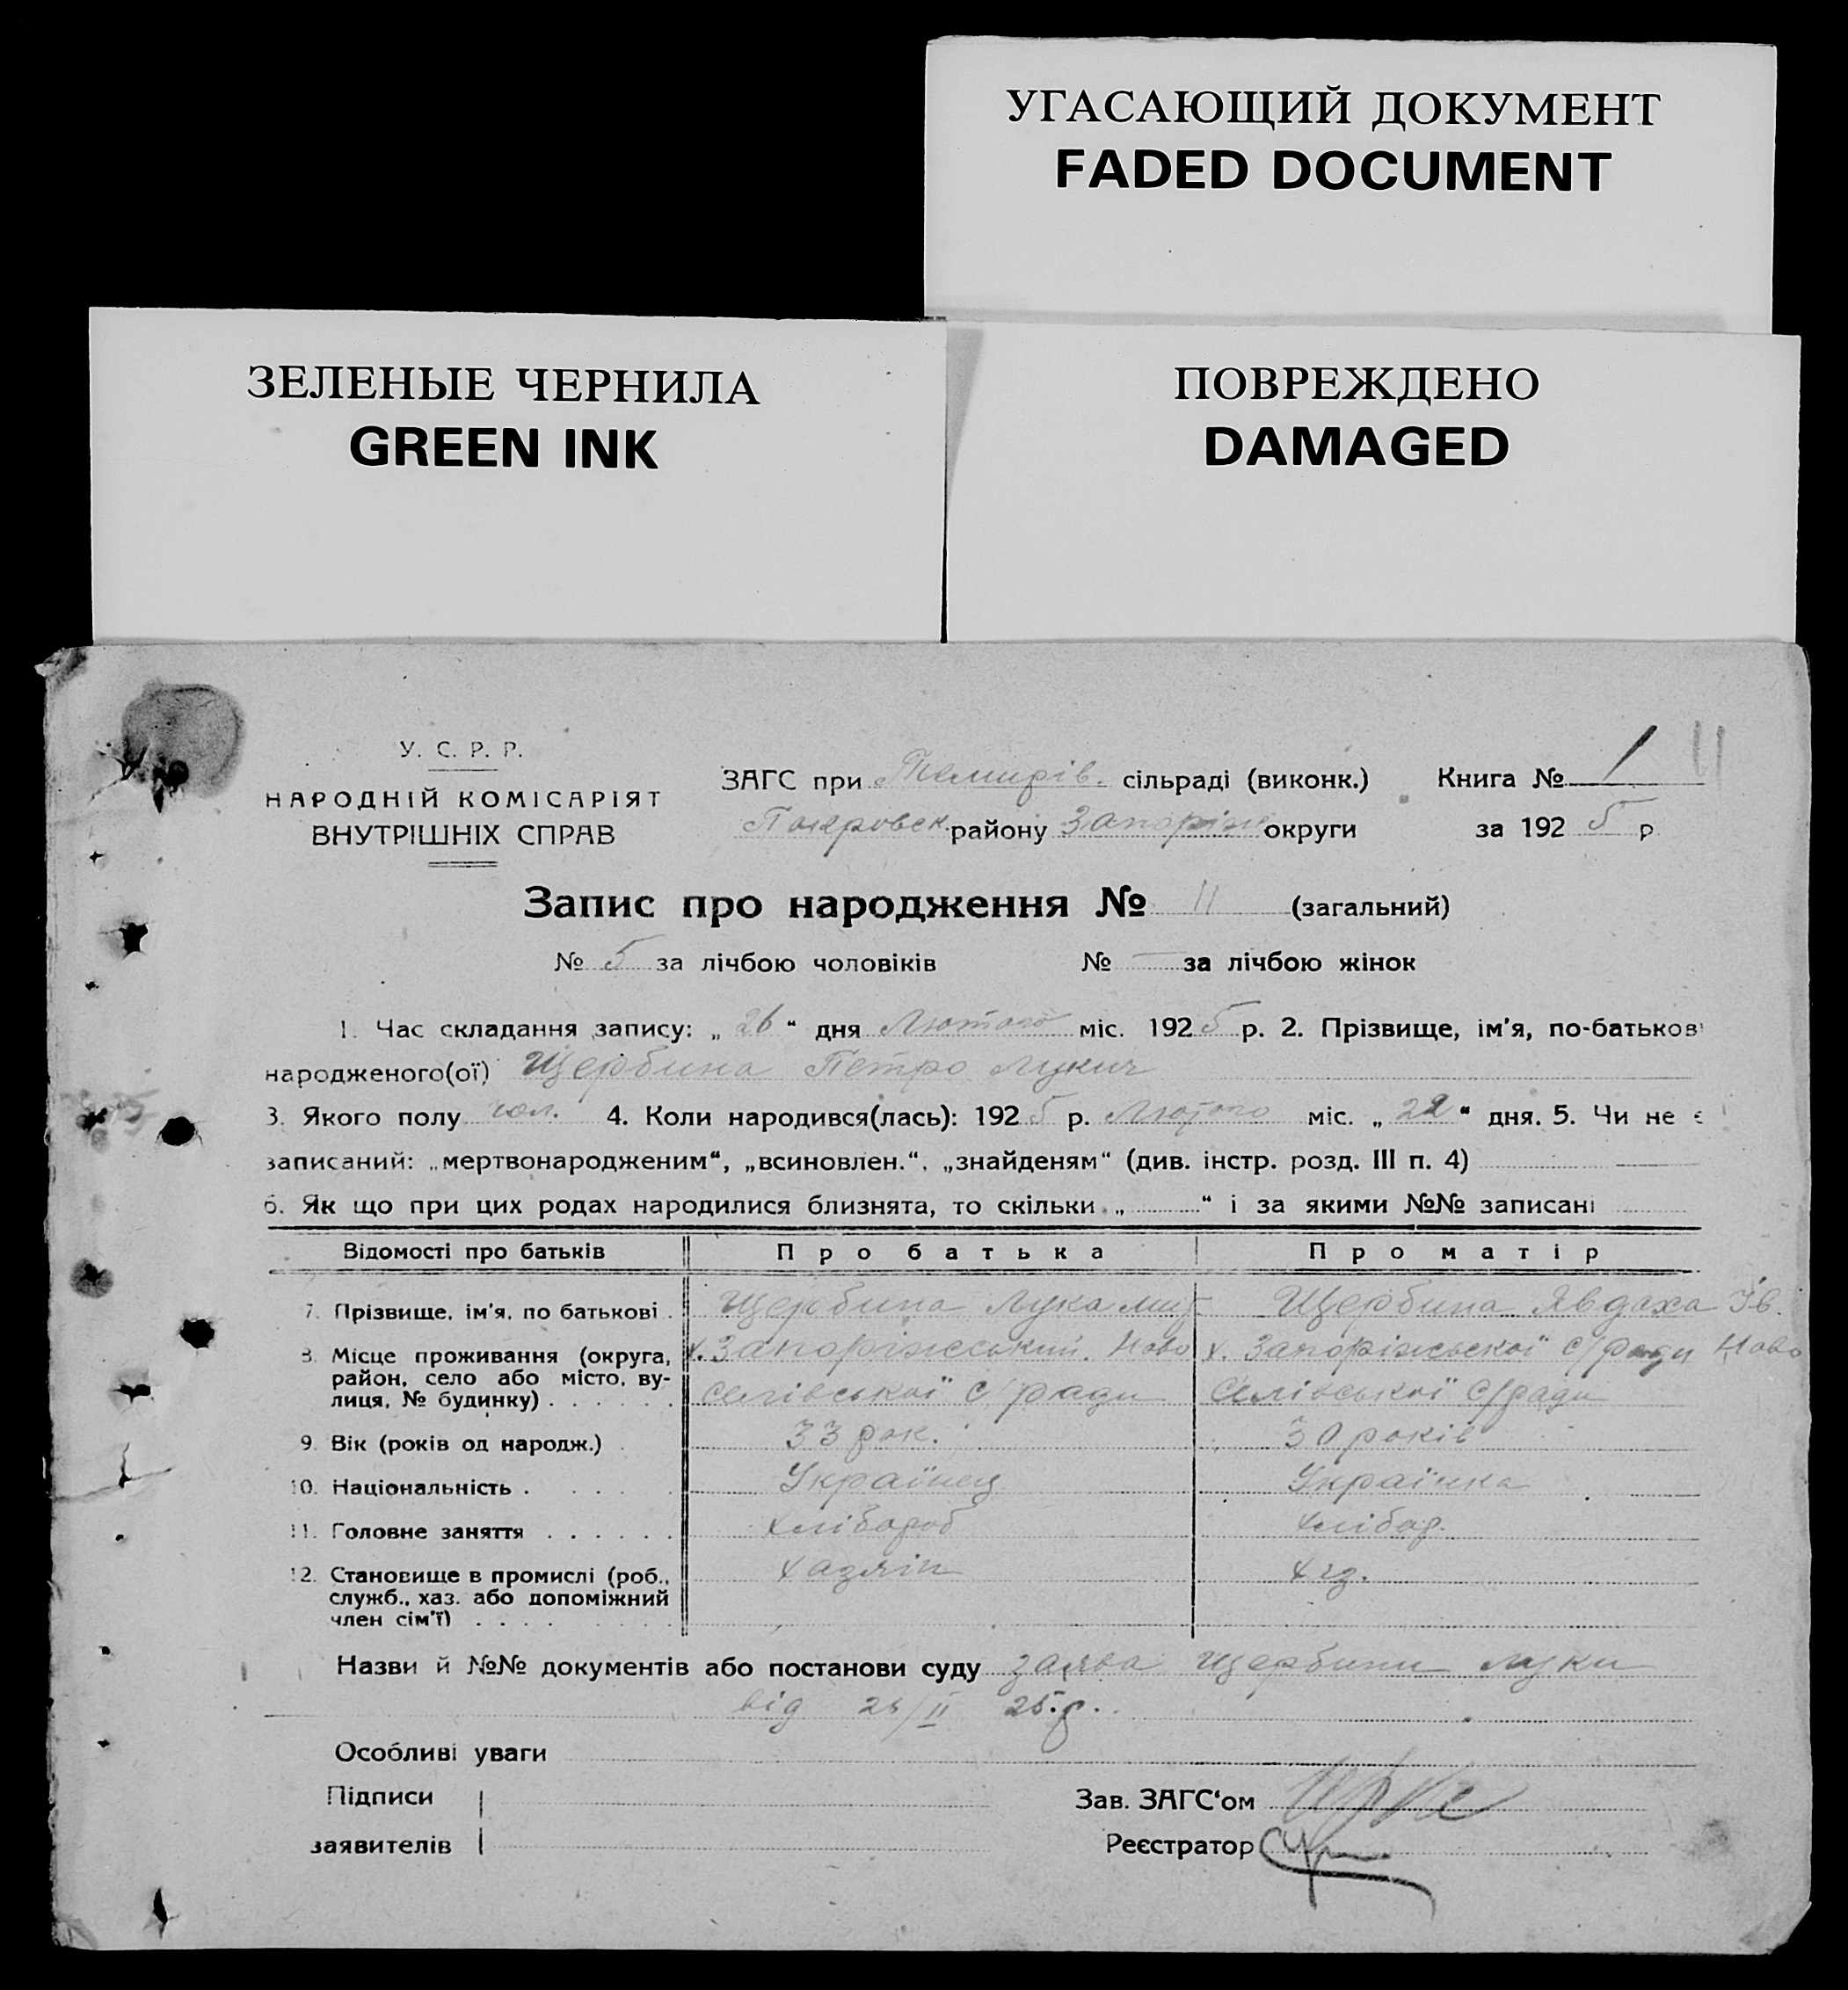 УГАСАЮЩИЙ ДОКУМЕНТ
FADED DOCUMENT
ЗЕЛЕНЫЕ ЧЕРНИЛА
GREEN INK
ПОВРЕЖДЕНО
DAMAGED
У. С. Р. Р.
НАРОДНІЙ КОМІСАРІЯТ
ВНУТРІШНІХ СПРАВ
ЗАГС при Темирів. сільраді (виконк.) Книга № 1 11
Покровськ. району Запоріж округи за 1925 р
Запис про народження № 11 (загальний)
№ 5 за лічбою чоловіків № — за лічбою жінок
1. Час складання запису: „26“ дня Лютого міс. 1925 р. 2. Прізвище, ім'я, по-батькові
народженого(ої) Щербина Петро Лукич
3. Якого полу чол. 4. Коли народився(лась): 1925 р. Лютого міс. „22“ дня. 5. Чи не є
записаний: „мертвонародженим“, „всиновлен.“, „знайденям“ (див. інстр. розд. III п. 4)
6. Як що при цих родах народилися близнята, то скільки „ “ і за якими №№ записані
Відомості про батьків Про батька Про матір
7. Прізвище, ім'я, по батькові . Щербина Лука Щербина Явдоха Ів.
8. Місце проживання (округа, х. Запоріжський. Ново х. Запоріжської с/ради Ново
район, село або місто, ву-
лиця, № будинку) . . . . . . селівської с/ради Селівської с/ради
9. Вік (років од народж.) . 33 рок. 30 років
10. Національність . . . . . Українец Українка
11. Головне заняття . . . . . . хлібороб хлібор.
12. Становище в промислі (роб., хазяін
служб., хаз. або допоміжний
член сім'ї) . . . .
Назви й №№ документів або постанови суду заява Щербини Луки
від /II 25.р.
Особливі уваги
Підписи Зав. ЗАГС‘ом
заявителів Реєстратор